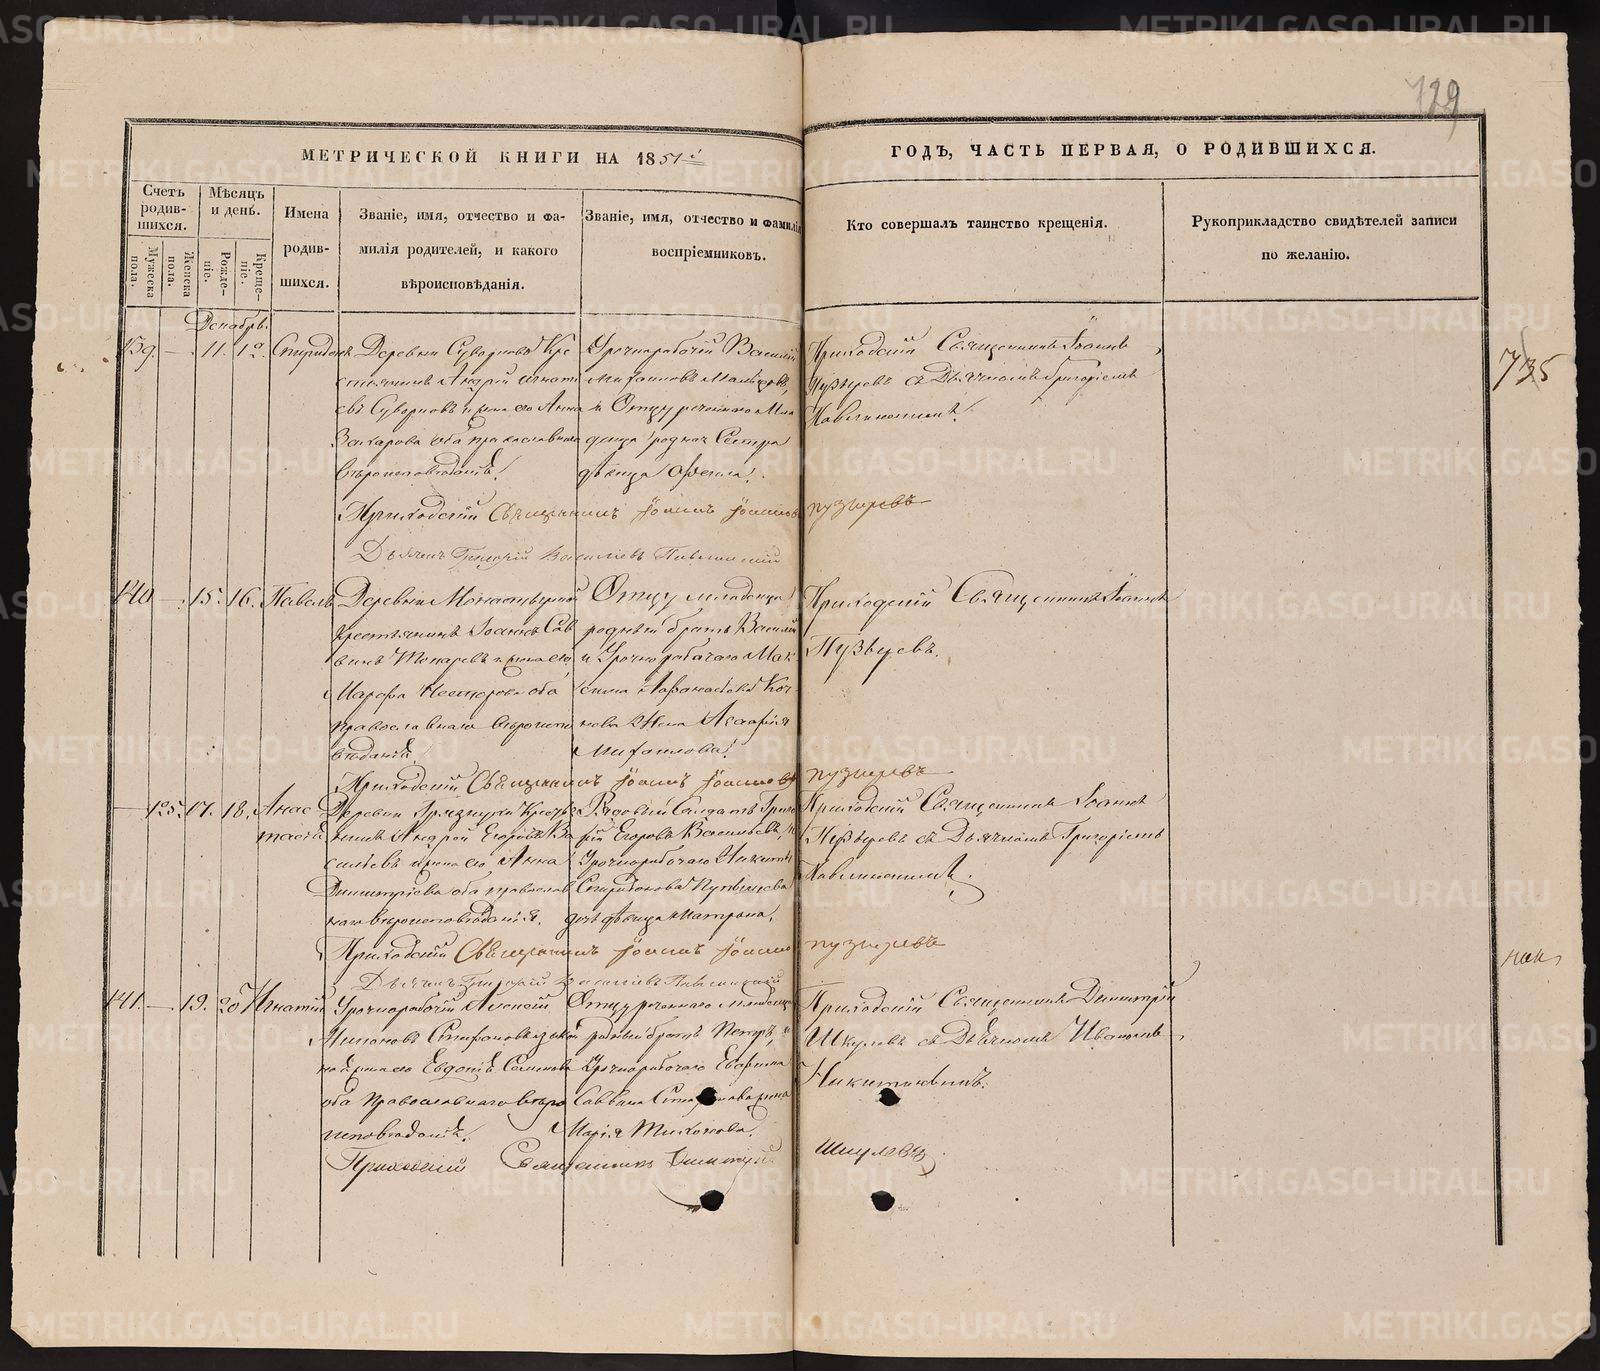 729
МЕТРИЧЕСКОЙ КНИГИ НА 1851й
ГОДЪ, ЧАСТЬ ПЕРВАЯ, О РОДИВШИХСЯ.
Счетъ родив-шихся.
Мужеска пола.
Женска пола.
Мѣсяцъ и день.
Рожде-ніе.
Креще-ніе.
Имена родив-шихся.
Званіе, имя, отчество и фа-
милія родителей, и какого
вѣроисповѣданія.
Званіе, имя, отчество и фамилія
воспріемниковъ.
Кто совершалъ таинство крещенія.
Рукоприкладство свидѣтелей записи
по желанію.
Декабрь.
139 — 11. 12. Спиридонъ
Деревни Суворковой Кре
стьянинъ Андрей Игнатi
евъ Суворковъ и жена его Анна
Захарова оба православнаго
вѣроисповѣданiя.
Урочнорабочiй Василiй
Михаиловъ
и Отцу реченнаго Мла
денца родная Сестра
дѣвица
Приходскiй Священникъ Iоаннъ
Пузыревъ съ Дьячкомъ Григорiемъ
Павлиновымъ.
735
Приходскiй Священникъ Iоаннъ Iоанновъ Пузыревъ
Дьячекъ Григорiй Василiевъ
140 — 15. 16. Павелъ
Деревни Монастырки
крестьянинъ Iоаннъ Сав
винъ Токаревъ и жена его
Марфа Нестерова оба
православнаго вѣроиспо
вѣданiя.
Отцу младенца
родный братъ Василiй
и Урочнорабочаго Мак
сима Афанасьева Коч
нева Жена Агафiя
Михаилова.
Приходскiй Священникъ Iоаннъ
Пузыревъ.
Приходскiй Священникъ Iоаннъ Iоанновъ Пузыревъ
— 125. 17. 18. Анас
тасiя
Деревни Грязнухи Крестья
нинъ Андрей Егоровъ Ва
сильевъ и жена его Анна
Димитрiева оба православ
наго вѣроисповѣданiя.
Рядовый Солдатъ Григо
рiй Егоровъ Васильевъ, и
Урочнорабочаго Никиты
Спиридонова
дочь дѣвица Матрона.
Приходскiй Священникъ Iоаннъ
Пузыревъ съ Дьячкомъ Григорiемъ
Павлиновымъ.
Приходскiй Священникъ Iоаннъ Iоанновъ Пузыревъ
Дьячекъ Григорiй Василiевъ
141. — 19. 20 Игнатiй
Урочнорабочiй Алексiй
на Жена его Евдокiя Семенова
оба Православнаго вѣро
исповѣданiя.
Отцу реченнаго младенца
родный братъ Петръ, и
Урочнорабочаго
Саввина жена
Марiя Тихонова.
Приходскiй Священникъ Димитрiй
Шкулевъ съ Дьячкомъ Иваномъ
Приходскiй Священникъ Димитрiй Шкулевъ
METRIKI.GASO-URAL.RU